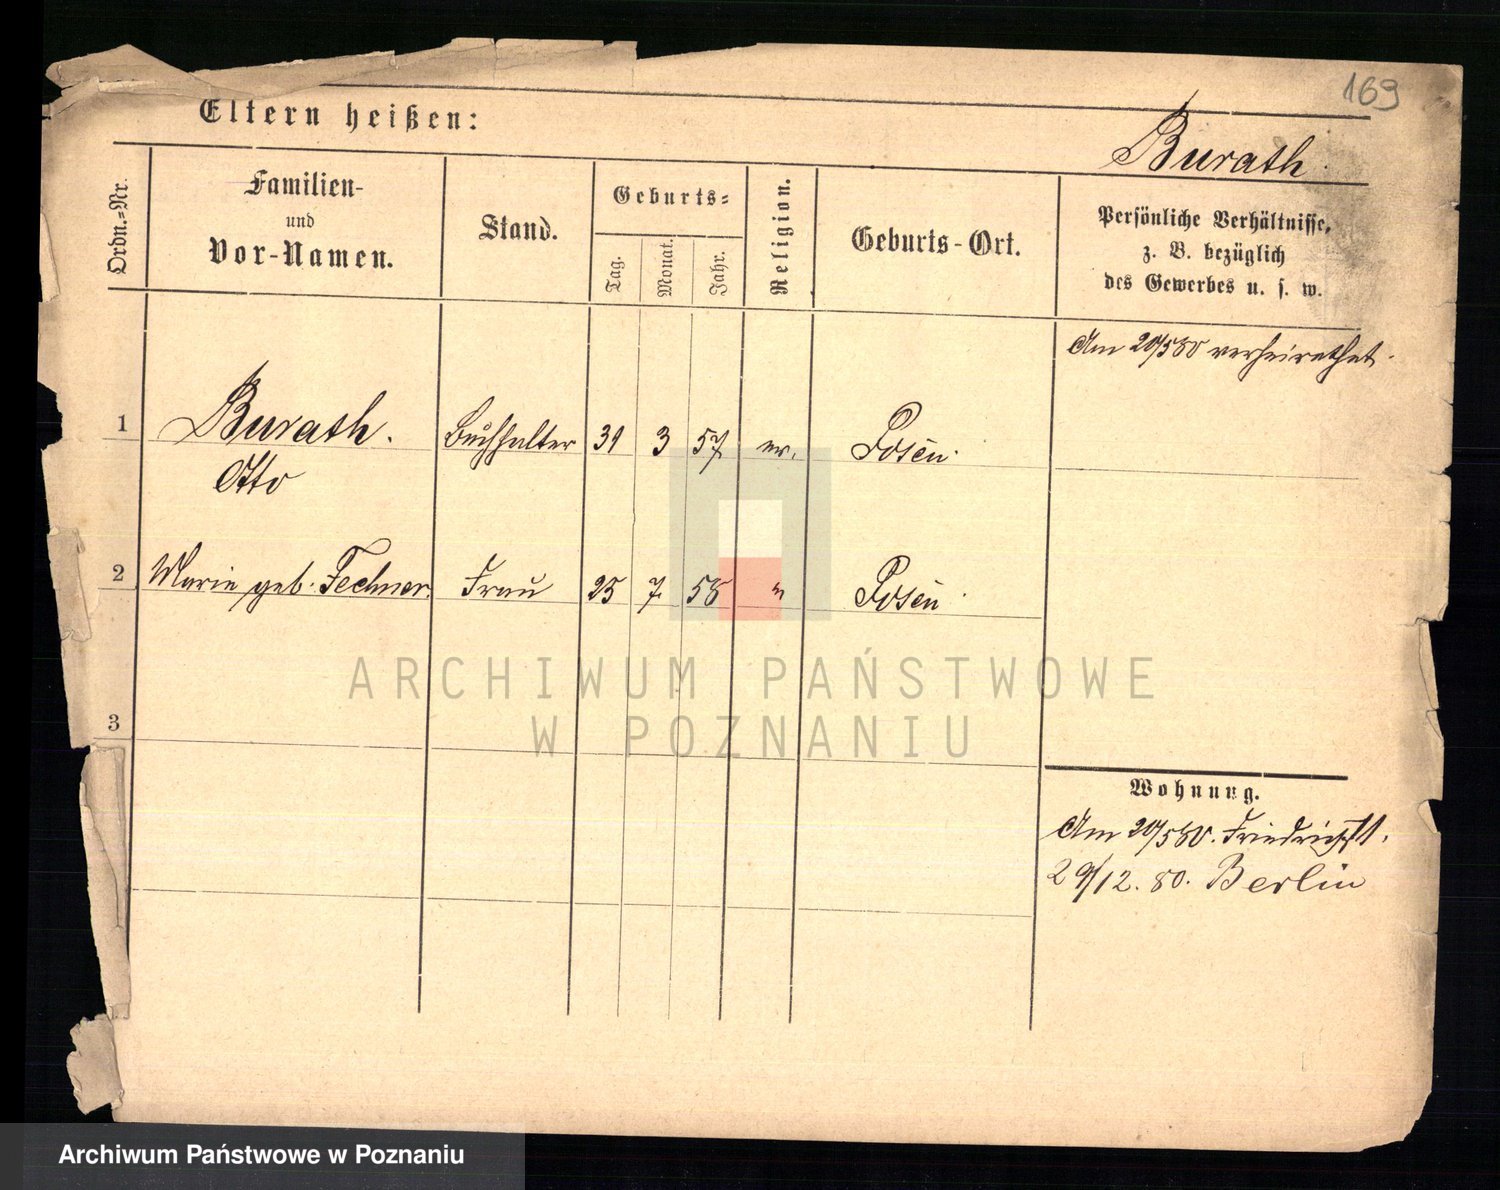 169
Eltern heißen:
Burath.
Ordn.=Nr.
Familien-
und
Vor-Namen.
Stand.
Geburts=
Tag.
Monat.
Jahr.
Religion.
Geburts-Ort.
Persönliche Verhältnisse,
z. B. bezüglich
des Gewerbes u. s. w.
Am 20/5 80 verheirathet.
1 Burath. Buchhalter 31 3 57 ev. Posen.
Otto
2 Marie geb. Fechner. Frau 25 7 58 " Posen
ARCHIWUM PAŃSTWOWE
W POZNANIU
3
Wohnung.
Am 20/5 80. Friedrichstr.
29/12. 80. Berlin
Archiwum Państwowe w Poznaniu